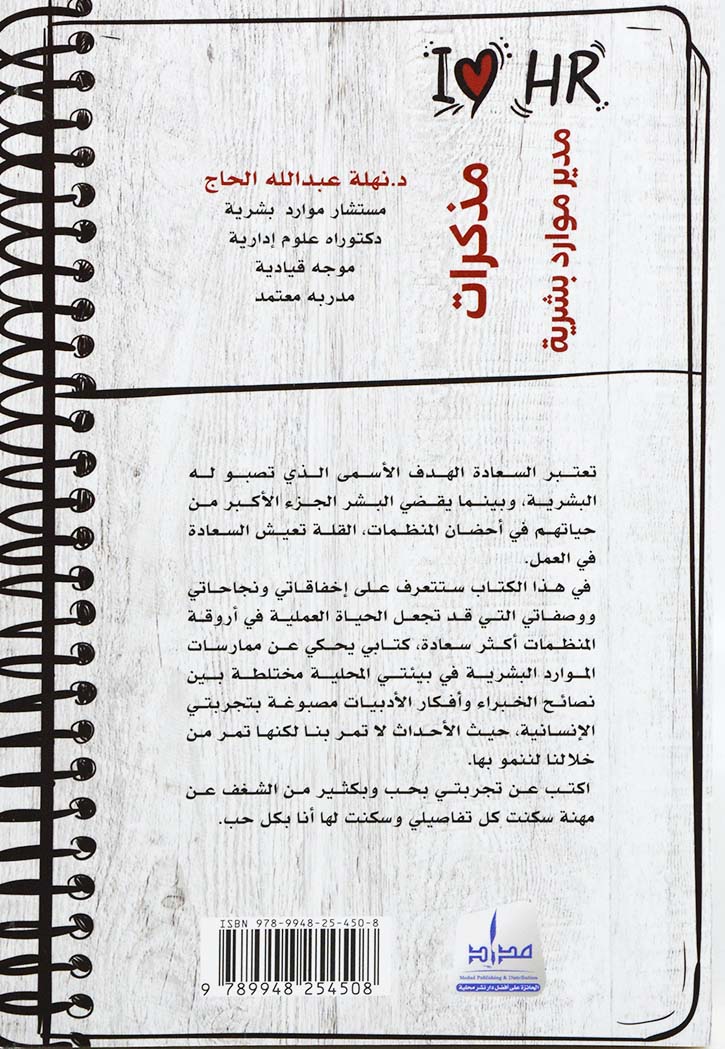 I ♥ HR
مذكرات
مدير موارد بشرية
د.نهلة عبدالله الحاج
مستشار موارد بشرية
دكتوراه علوم إدارية
موجه قيادية
مدربه معتمد
تعتبر السعادة الهدف الأسمى الذي تصبو له
البشرية، وبينما يقضي البشر الجزء الأكبر من
حياتهم في أحضان المنظمات، القلة تعيش السعادة
في العمل.
في هذا الكتاب ستتعرف على إخفاقاتي ونجاحاتي
ووصفاتي التي قد تجعل الحياة العملية في أروقة
المنظمات أكثر سعادة، كتابي يحكي عن ممارسات
الموارد البشرية في بيئتي المحلية مختلطة بين
نصائح الخبراء وأفكار الأدبيات مصبوغة بتجربتي
الإنسانية، حيث الأحداث لا تمر بنا لكنها تمر من
خلالنا لننمو بها.
اكتب عن تجربتي بحب وبكثير من الشغف عن
مهنة سكنت كل تفاصيلي وسكنت لها أنا بكل حب.
ISBN 978-9948-25-450-8
9 789948 254508
مداد
Medad Publishing & Distribution
الحائزة على أفضل دار نشر محلية